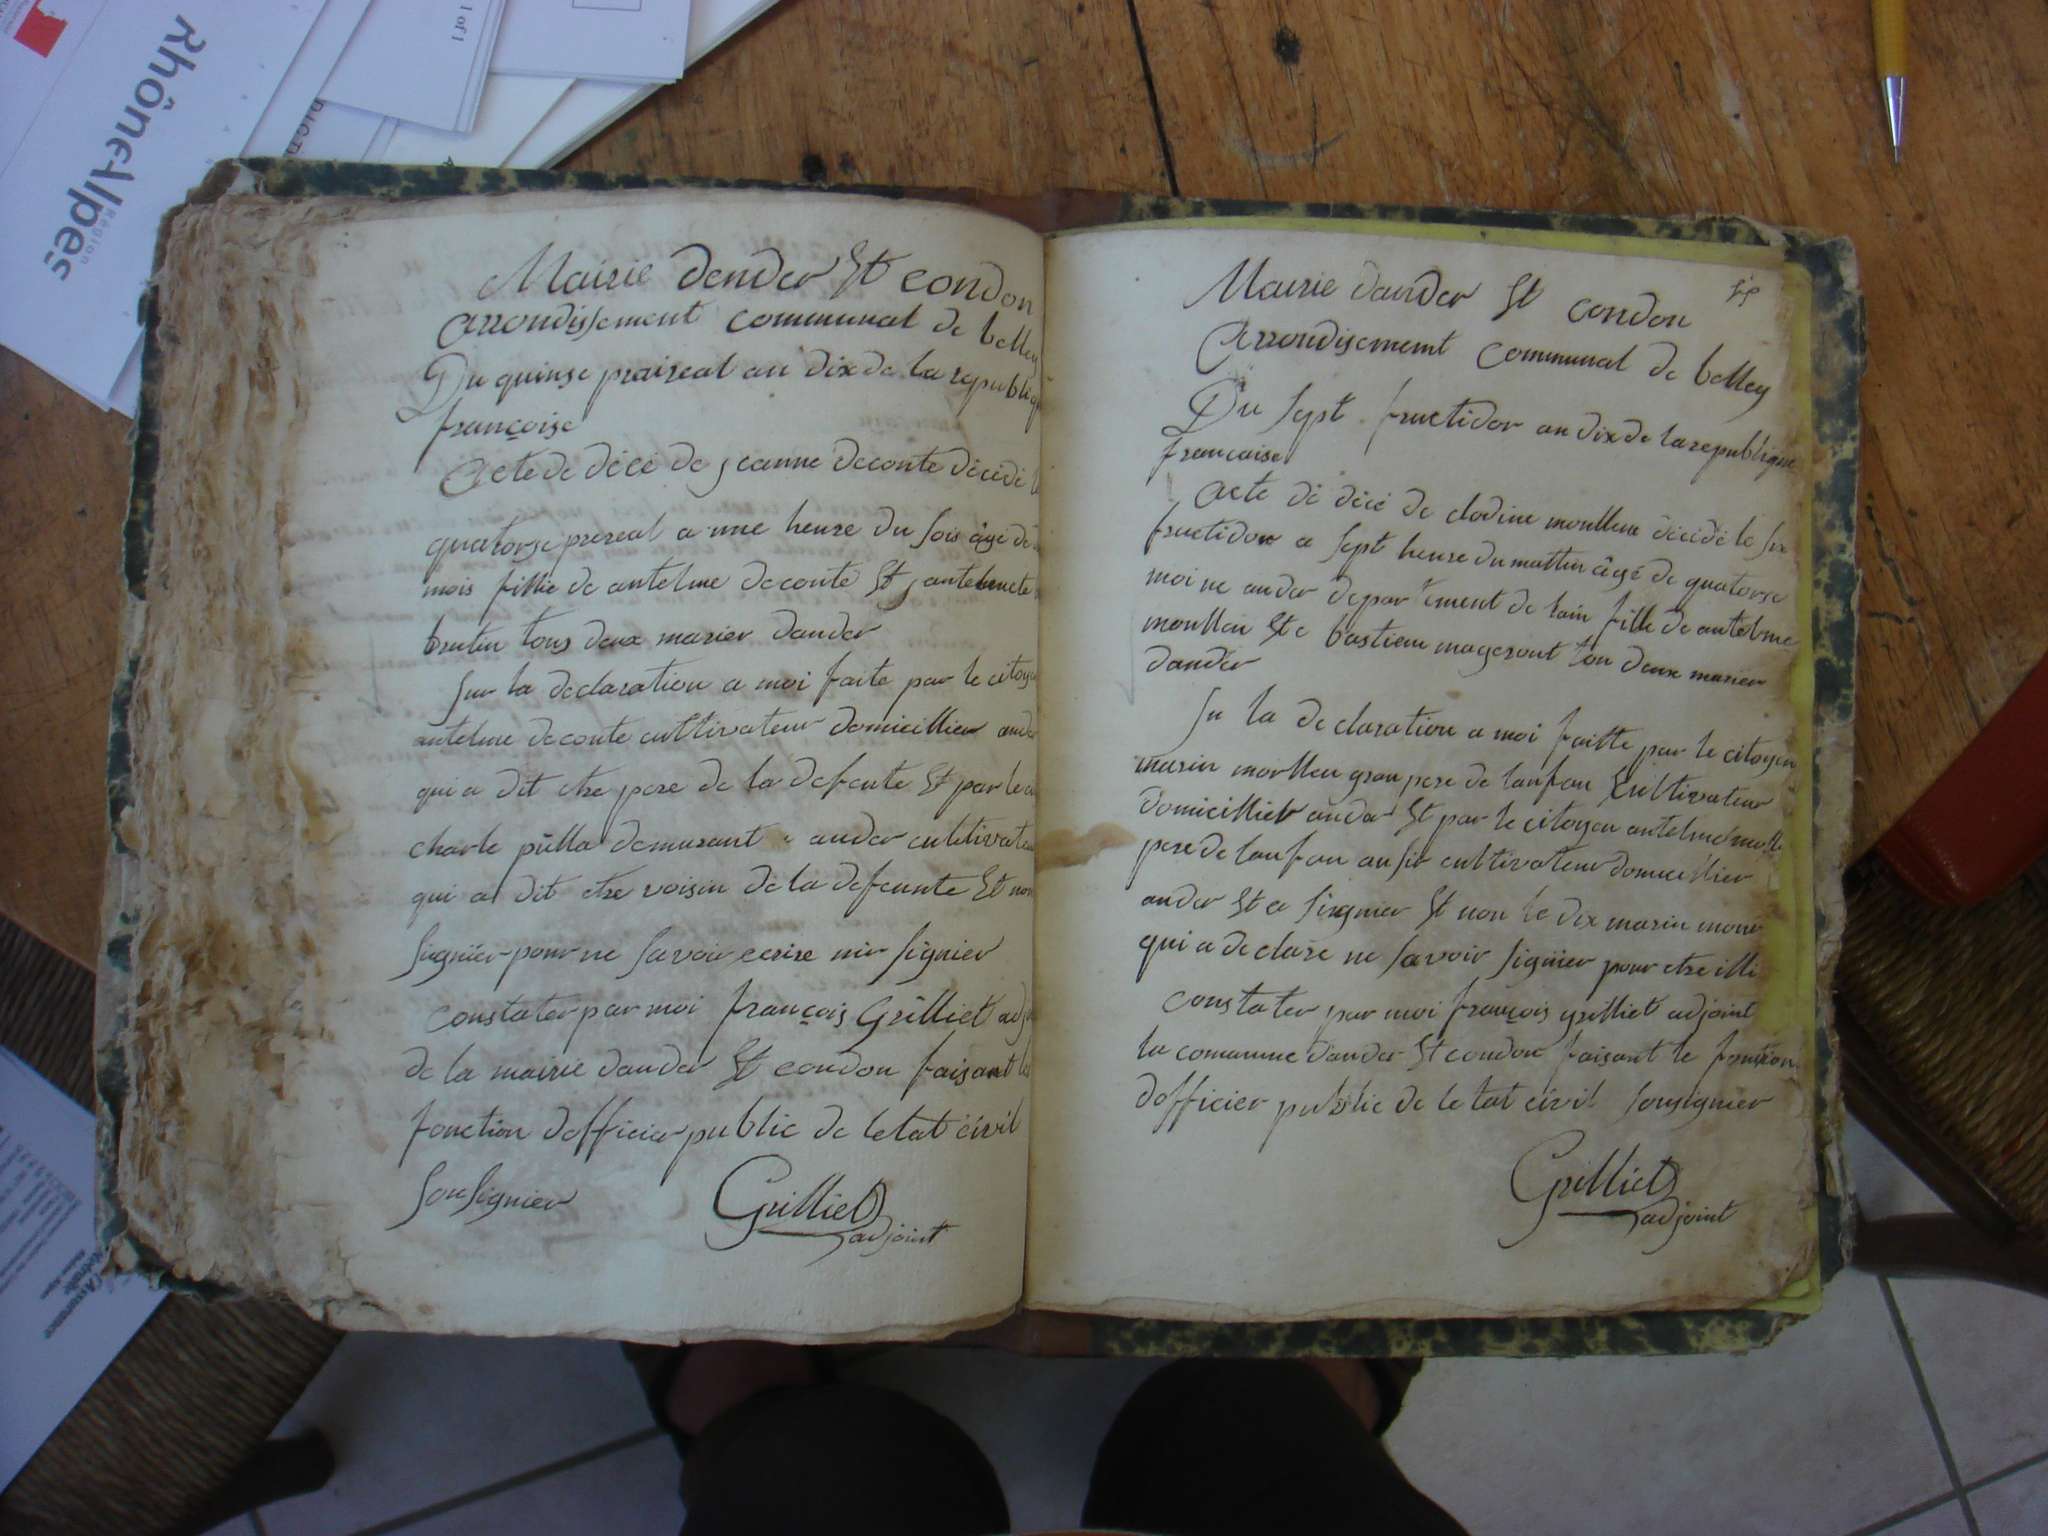 Rhône-Alpes
Région
1 of 1
Mairie dander St condon
arrondissement communal de belley
Du quinse praireal an dix de la republiq
françoise
acte de décé de jeanne deconte décédé
quatorse prereal a une heure du soir âgé de
mois fillie de antelme deconte St
brutin tous deux marier dander
Sur la declaration a moi faite par le citoye
antelme deconte cultivateur domicillier ander
qui a dit etre pere de la defunte St par le
charle pulla demurant a ander cultivateu
qui a dit etre voisin de la defeunte St non
signier pour ne savoir ecrire nir signier
constater par moi françois Grilliet adj
de la mairie dander St condon faisant les
fonction dofficier public de letat civil
sousignier
Grilliet
adjoint
Mairie dander St condon
arrondisement communal de belley
Du sept fructidor an dix de la republique
francaise
acte de décé de clodine moulleu décédé le six
fructidor a sept heure du mattin âgé de quatorse
moi ne ander departement de lain fille de antelme
moulleu St e bastieni mageront tou deux marier
dander
Su la declaration a moi faitte par le citoyen
marin morlleu gran pere de lanfan cultivateur
domicillier ander St par le citoyen antelme
pere de lanfan ausir cultivateur domicillier
ander St a signier St non le dix marin
qui a declare ne savoir signier pour etre illi
constater par moi françois grilliet adjoint
la comunne dander St condon faisant le fontion
dofficier public de le tat civil sousignier
Grilliet
adjoint